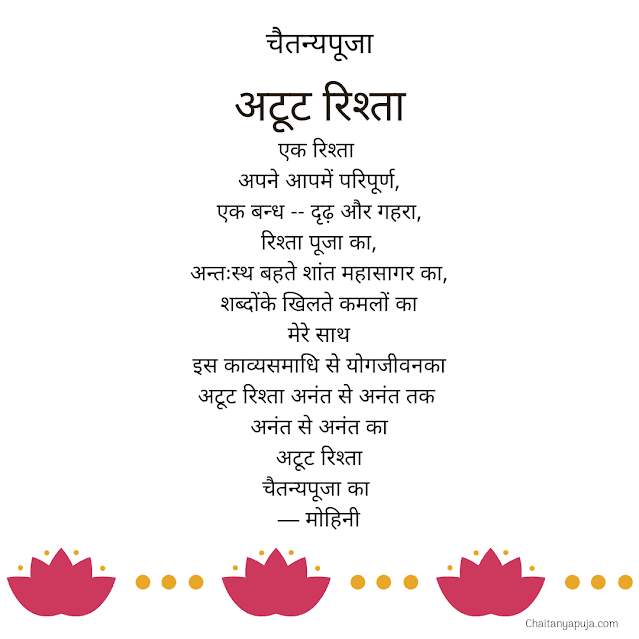 चैतन्यपूजा
अटूट रिश्ता
एक रिश्ता
अपने आपमें परिपूर्ण,
एक बन्ध -- दृढ़ और गहरा,
रिश्ता पूजा का,
अन्तःस्थ बहते शांत महासागर का,
शब्दोंके खिलते कमलों का
मेरे साथ
इस काव्यसमाधि से योगजीवनका
अटूट रिश्ता अनंत से अनंत तक
अनंत से अनंत का
अटूट रिश्ता
चैतन्यपूजा का
— मोहिनी
Chaitanyapuja.com